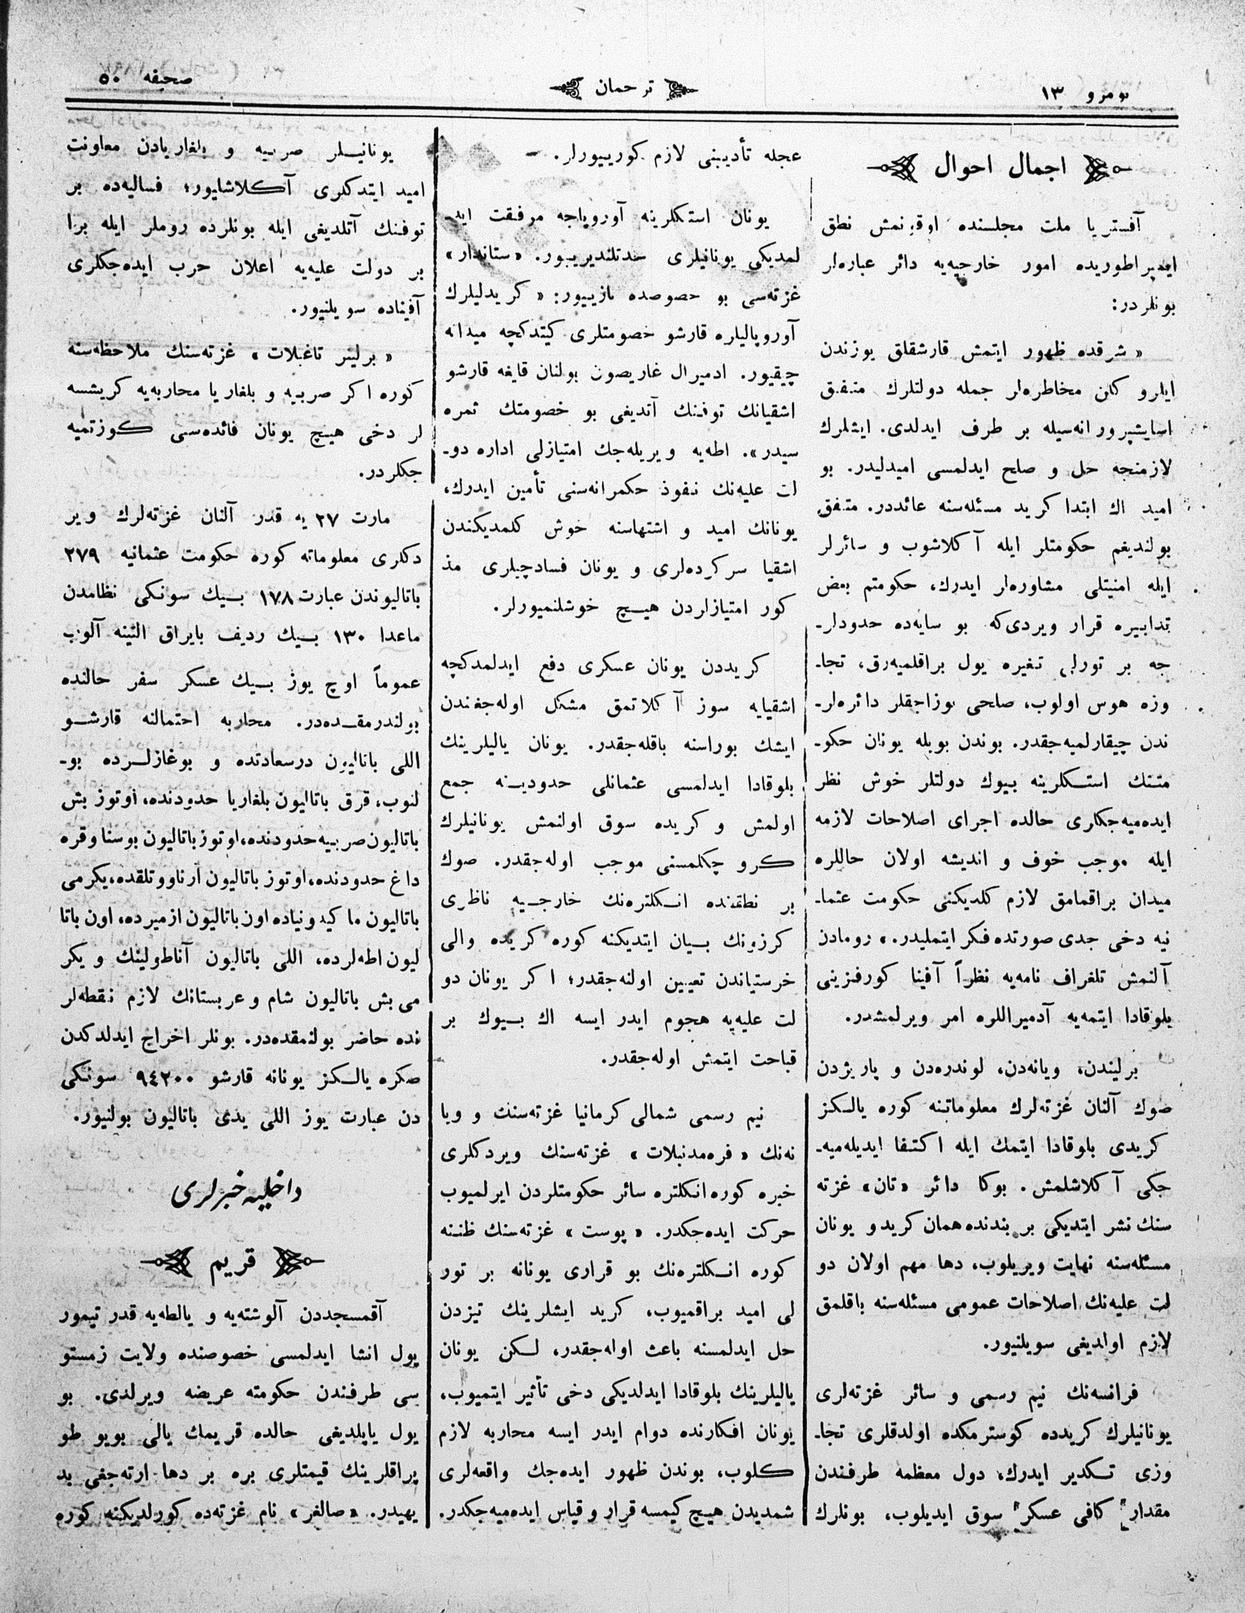 نومرو ١٣
ترجمان
صحيفه ٥٠
اجمال احوال
آفستريا ملت مجلسنده اوقونمش نطق
ايمپراطوريده امور خارجيه‌يه دائر عباره‌لر
بونلردر:
« شرقده ظهور ايتمش قارشقلق يوزندن
ايلرو كلن مخاطره‌لر جمله دولتلرك متفق
اسايشپرورانه‌سيله بر طرف ايدلدى. ايشلرك
لازمنجه حل و صلح ايدلمسى اميدليدر. بو
اميد اك ابتدا كريد مسئله‌سنه عائددر. متفق
بولنديغم حكومتلر ايله آكلاشوب و سائرلر
ايله امنيتلى مشاوره‌لر ايدرك، حكومتم بعض
تدابيره قرار ويردى‌كه بو سايه‌ده حدودلر-
جه بر تورلى تغيره يول براقلميه‌رق، تجا-
وزه هوس اولوب، صلحى بوزاجقلر دائره‌لر-
ندن چيقارلميه‌جقدر. بوندن بويله يونان حكو-
متنك استكلرينه بيوك دولتلر خوش نظر
ايده‌ميه‌جكلرى حالده اجراى اصلاحات لازمه
ايله موجب خوف و انديشه اولان حاللره
ميدان براقمامق لازم كلديكنى حكومت عثما-
نيه دخى جدى صورتده فكر ايتمليدر. » رومادن
آلنمش تلغراف نامه‌يه نظراً آفينا كورفزينى
بلوقادا ايتمه‌يه آدميراللره امر ويرلمشدر.
برليندن، ويانه‌دن، لوندره‌دن و پاريژدن
صوك آلنان غزته‌لرك معلوماتنه كوره يالكز
كريدى بلوقادا ايتمك ايله اكتفا ايديله‌ميه-
جكى آكلاشلمش. بوكا دائر «تان» غزته
سنك نشر ايتديكى بر بندنده همان كريد و يونان
مسئله‌سنه نهايت ويريلوب، دها مهم اولان دو
لت عليه‌نك اصلاحات عمومى مسئله‌سنه باقلمق
لازم اولديغى سويلنيور.
فرانسه‌نك نيم رسمى و سائر غزته‌لرى
يونانيلرك كريدده كوسترمكده اولدقلرى تجا-
وزى تكدير ايدرك، دول معظمه طرفندن
مقدار كافى عسكر سوق ايديلوب، بونلرك
عجله تأديبنى لازم كورييورلر. —
يونان استكلرينه آوروپاجه مرفقت ايد-
لمديكى يونانيلرى حدتلنديرييور. «ستاندار»
غزته‌سى بو خصوصده يازييور: « كريدليلرك
آوروپاليلره قارشو خصومتلرى كيتدكچه ميدانه
چيقيور. ادميرال غاريصون بولنان قايغه قارشو
اشقيانك توفنك آتديغى بو خصومتك ثمره
سيدر». اطه‌يه ويريله‌جك امتيازلى اداره دو-
لت عليه‌نك نفوذ حكمرانه‌سنى تأمين ايدرك،
يونانك اميد و اشتهاسنه خوش كلمديكندن
اشقيا سركرده‌لرى و يونان فسادچيلرى مذ
كور امتيازلردن هيچ خوشلنميورلر.
كريددن يونان عسكرى دفع ايدلمدكچه
اشقيايه سوز آكلاتمق مشكل اوله‌جغندن
ايشك بوراسنه باقله‌جقدر. يونان ياليلرينك
بلوقادا ايدلمسى عثمانلى حدودينه جمع
اولمش و كريده سوق اولنمش يونانيلرك
كرو چكلمسنى موجب اوله‌جقدر. صوك
بر نطقنده انكلتره‌نك خارجيه ناظرى
كرزونك بيان ايتديكنه كوره كريده والى
خرستياندن تعيين اولنه‌جقدر؛ اكر يونان دو
لت عليه‌يه هجوم ايدر ايسه اك بيوك بر
قباحت ايتمش اوله‌جقدر.
نيم رسمى شمالى كرمانيا غزته‌سنك و ويا
نه‌نك « فره‌مدنبلات » غزته‌سنك ويردكلرى
خبره كوره انكلتره سائر حكومتلردن ايرلميوب
حركت ايده‌جكدر. « پوست » غزته‌سنك ظننه
كوره انكلتره‌نك بو قرارى يونانه بر تور
لى اميد براقميوب، كريد ايشلرينك تيزدن
حل ايدلمسنه باعث اوله‌جقدر، لكن يونان
ياليلرينك بلوقادا ايدلديكى دخى تأثير ايتميوب،
يونان افكارنده دوام ايدر ايسه محاربه لازم
كلوب، بوندن ظهور ايده‌جك واقعه‌لرى
شمديدن هيچ كيمسه قرار و قياس ايده‌ميه‌جكدر.
يونانيلر صربيه و بلغاريادن معاونت
اميد ايتدكلرى آكلاشايور؛ فساليه‌ده بر
توفنك آتلديغى ايله بونلرده روملر ايله برا
بر دولت عليه‌يه اعلان حرب ايده‌جكلرى
آفيناده سويلنيور.
« برلينر تاغبلات » غزته‌سنك ملاحظه‌سنه
كوره اكر صربيه و بلغاريا محاربه‌يه كريشسه
لر دخى هيچ يونان فائده‌سى كوزتميه
جكلردر.
مارت ٢٧ يه قدر آلنان غزته‌لرك وير
دكلرى معلوماته كوره حكومت عثمانيه ٢٧٩
باتاليوندن عبارت ١٧٨ بيك سونكى نظامدن
ماعدا ١٣٠ بيك رديف بايراق التينه آلوب
عموماً اوچ يوز بيك عسكر سفر حالنده
بولندرمقده‌در. محاربه احتمالنه قارشو
اللى باتاليون درسعادتده و بوغازلرده بو-
لنوب، قرق باتاليون بلغاريا حدودنده، اوتوز بش
باتاليون صربيه حدودنده، اوتوز باتاليون بوسنا و قره
داغ حدودنده، اوتوز باتاليون آرناووتلقده، يكرمى
باتاليون ماكيدونياده اون باتاليون ازميرده، اون باتا
ليون اطه‌لرده، اللى باتاليون آناطولينك و يكر
مى بش باتاليون شام و عربستانك لازم نقطه‌لر
نده حاضر بولنمقده‌در. بونلر اخراج ايدلدكدن
صكره يالكز يونانه قارشو ٩٤٢٠٠ سونكى
دن عبارت يوز اللى يدى باتاليون بولنيور.
داخليه خبرلرى
قريم
آقمسجددن آلوشته‌يه و يالطه‌يه قدر تيمور
يول انشا ايدلمسى خصوصنده ولايت زمستو
سى طرفندن حكومته عريضه ويرلدى. بو
يول ياپلديغى حالده قريمك يالى بويو طو
پراقلرينك قيمتلرى بره بر دها ارته‌جغى بد
يهيدر. «صالغر» نام غزته‌ده كورلديكنه كوره